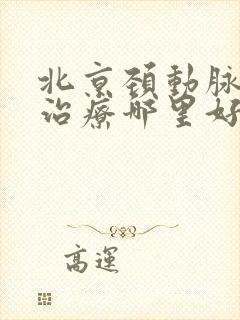 北京頚動脉
治療哪里好
高運